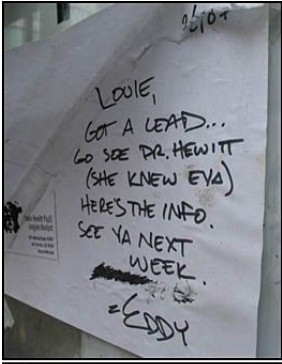 LOUIE,
GOT A LEAD...
GO SEE DR. HEWITT
(SHE KNEW EVA)
HERE'S THE INFO.
SEE YA NEXT
WEEK.
=EDDY